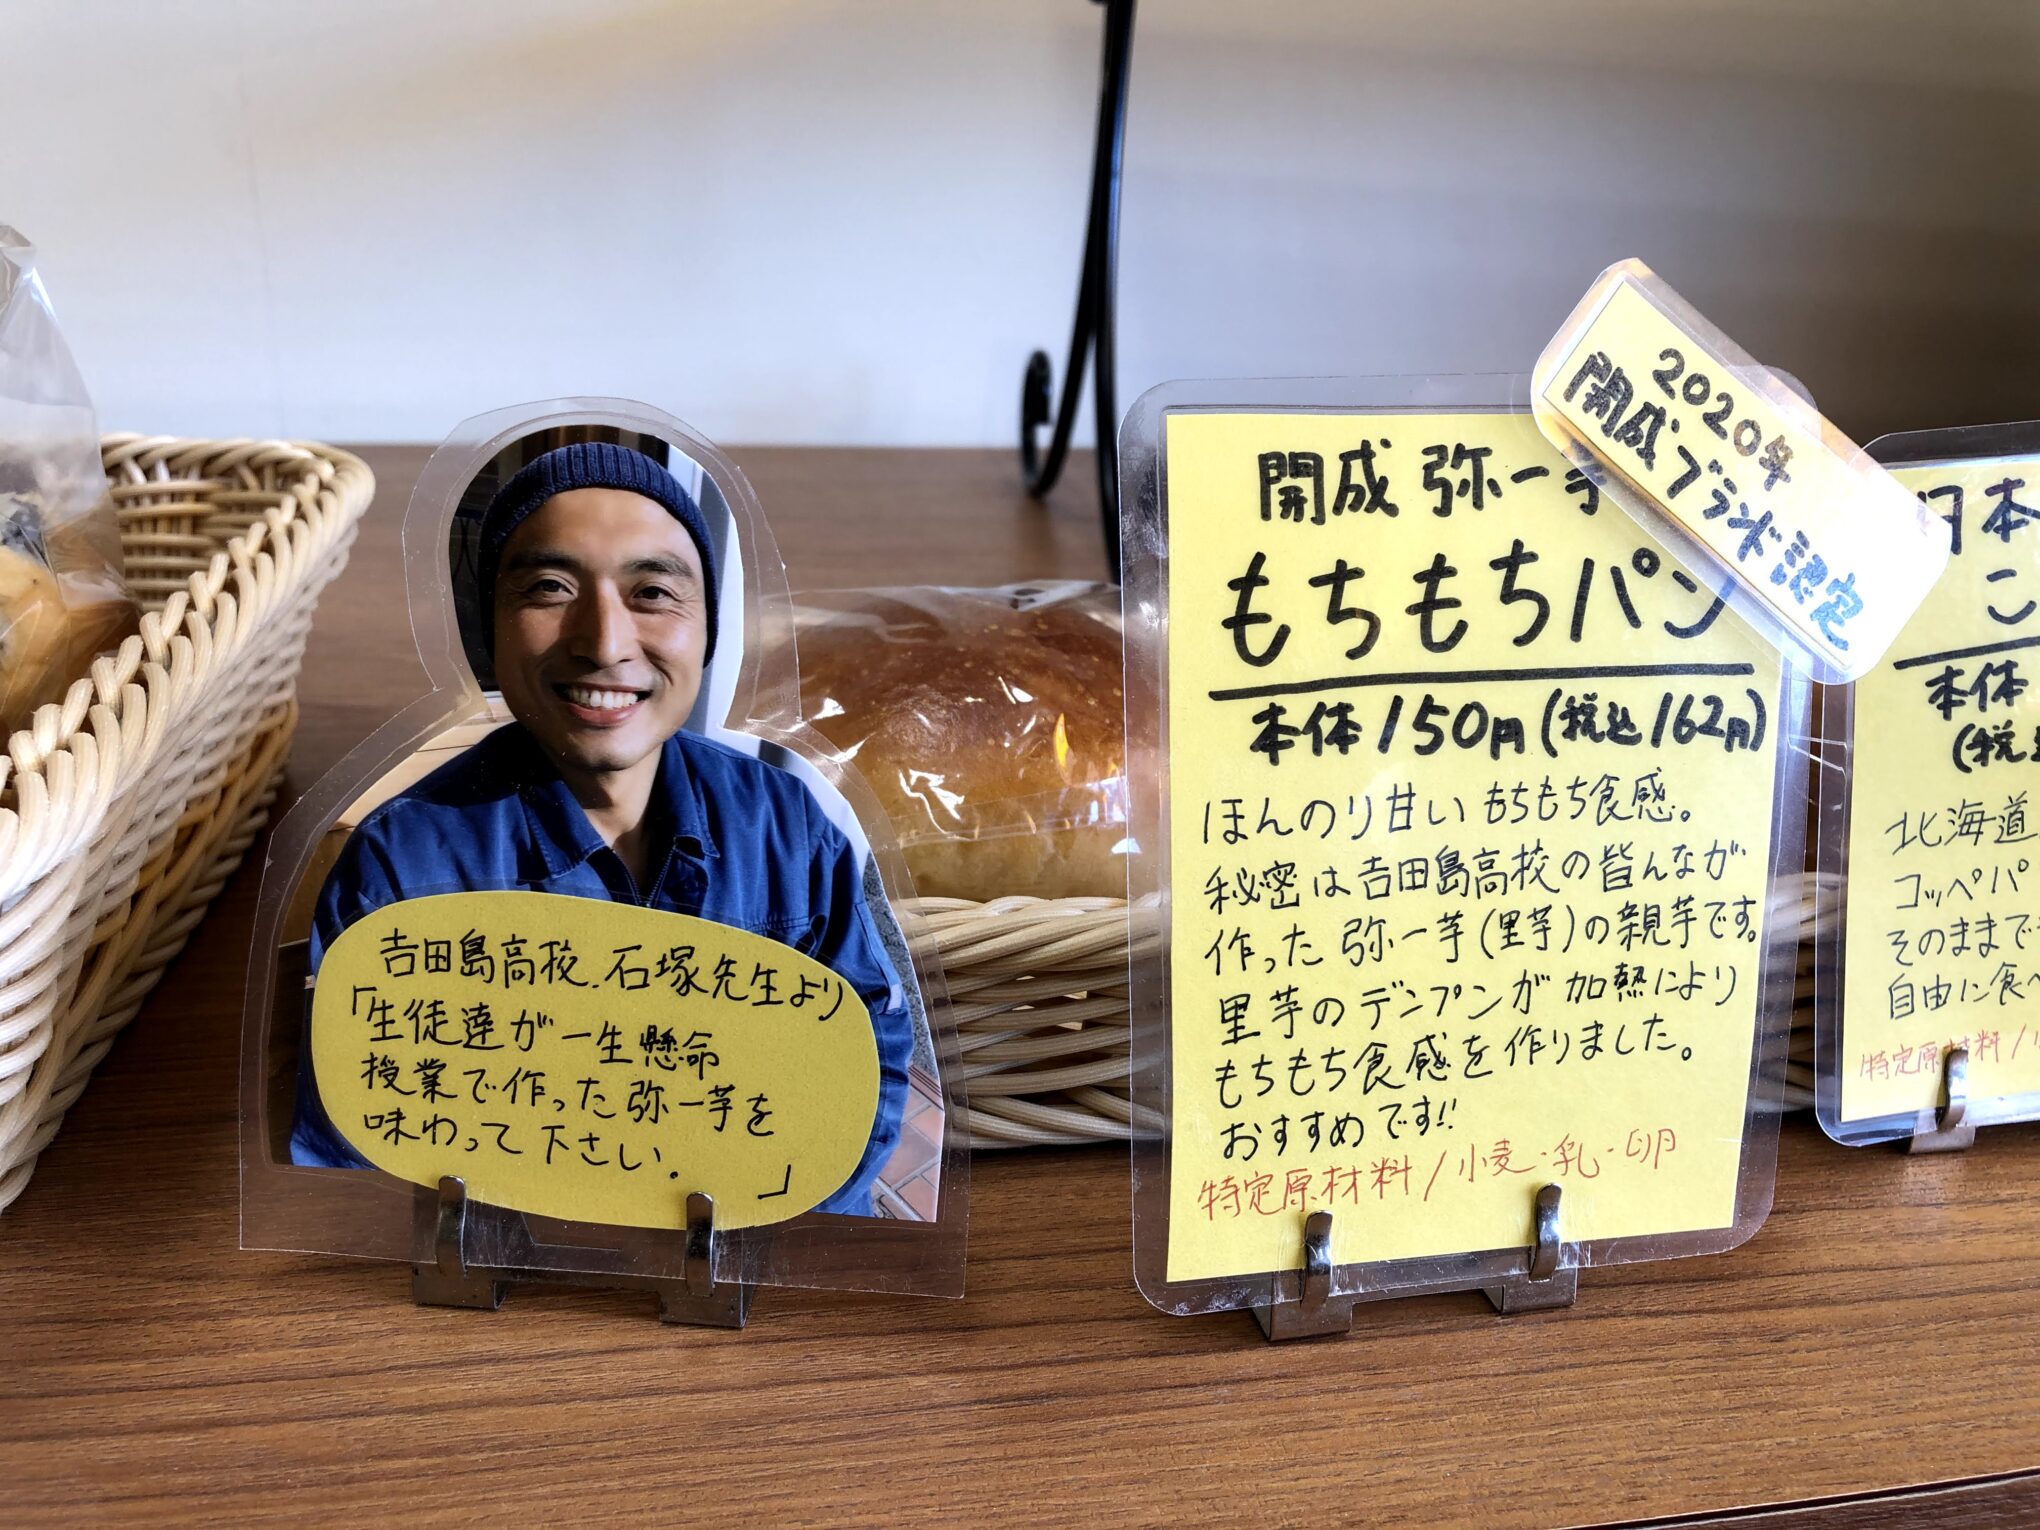 吉田島高校.石塚先生より
「生徒達が一生懸命
授業で作った弥一芋を
味わって下さい.
」
2020年
開成ブランド認定
開成 弥一芋
もちもちパン
本体150円(税込162円)
ほんのり甘いもちもち食感。
秘密は吉田島高校の皆んなが
作った弥一芋(里芋)の親芋です。
里芋のデンプンが加熱により
もちもち食感を作りました。
おすすめです!!
特定原材料/小麦・乳・卵
日本
こ
本体
(税込
北海道
コッペパ
そのままで
自由に食べ
特定原材料/